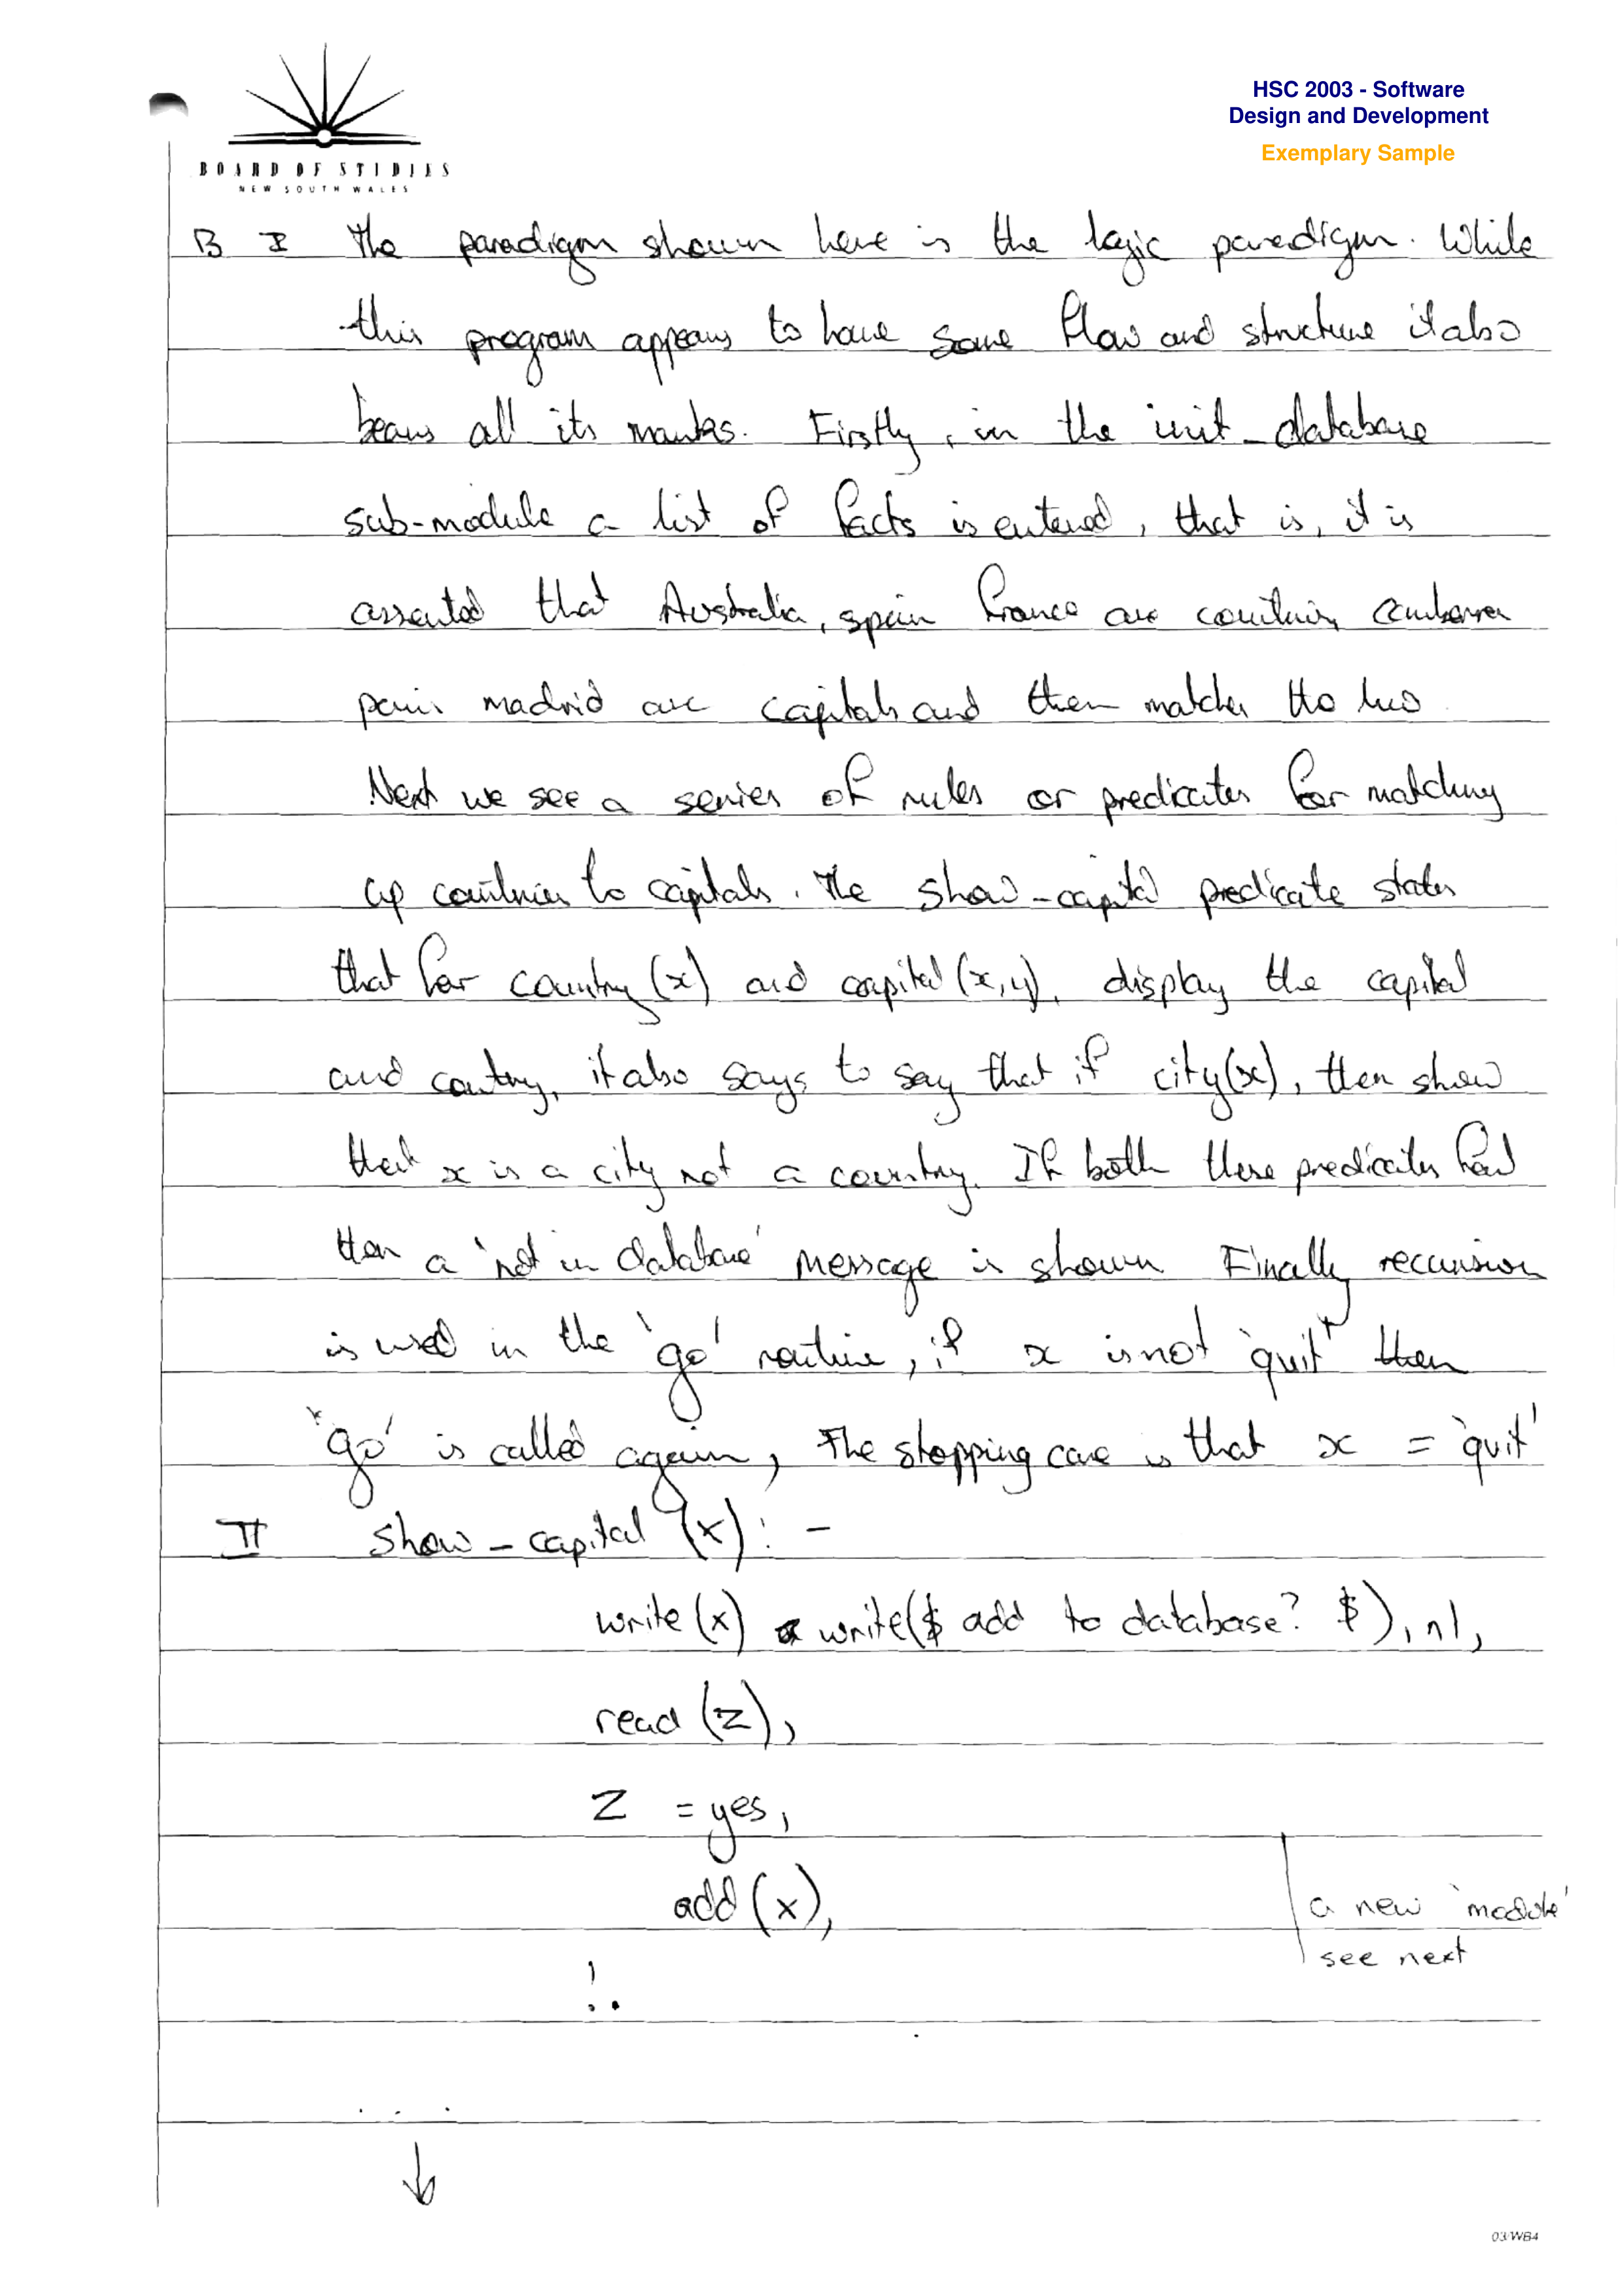 BOARD OF STUDIES
NEW SOUTH WALES
HSC 2003 - Software
Design and Development
Exemplary Sample
B I The paradigm shown here is the logic paradigm. While
this program appears to have some flow and structure it also
bears all its marks. Firstly, in the init_database
sub-module a list of facts is entered, that is, it is
asserted that Australia, spain france are countries canberra
paris madrid are capitals and then matches the two
Next we see a series of rules or predicates for matching
up countries to capitals. The show-capital predicate states
that for country (x) and capital (x,y), display the capital
and country, it also says to say that if city(x), then show
that x is a city not a country. If both these predicates fail
then a 'not in database' message is shown Finally recursion
is used in the 'go' routine, if x is not 'quit' then
'go' is called again, The stopping case is that x = 'quit'
II show-capital (x) : -
write (x) write($ add to database? $), nl,
read (z),
Z = yes,
add (x),
a new 'module'
see next
!.
. . .
↓
03/WB4